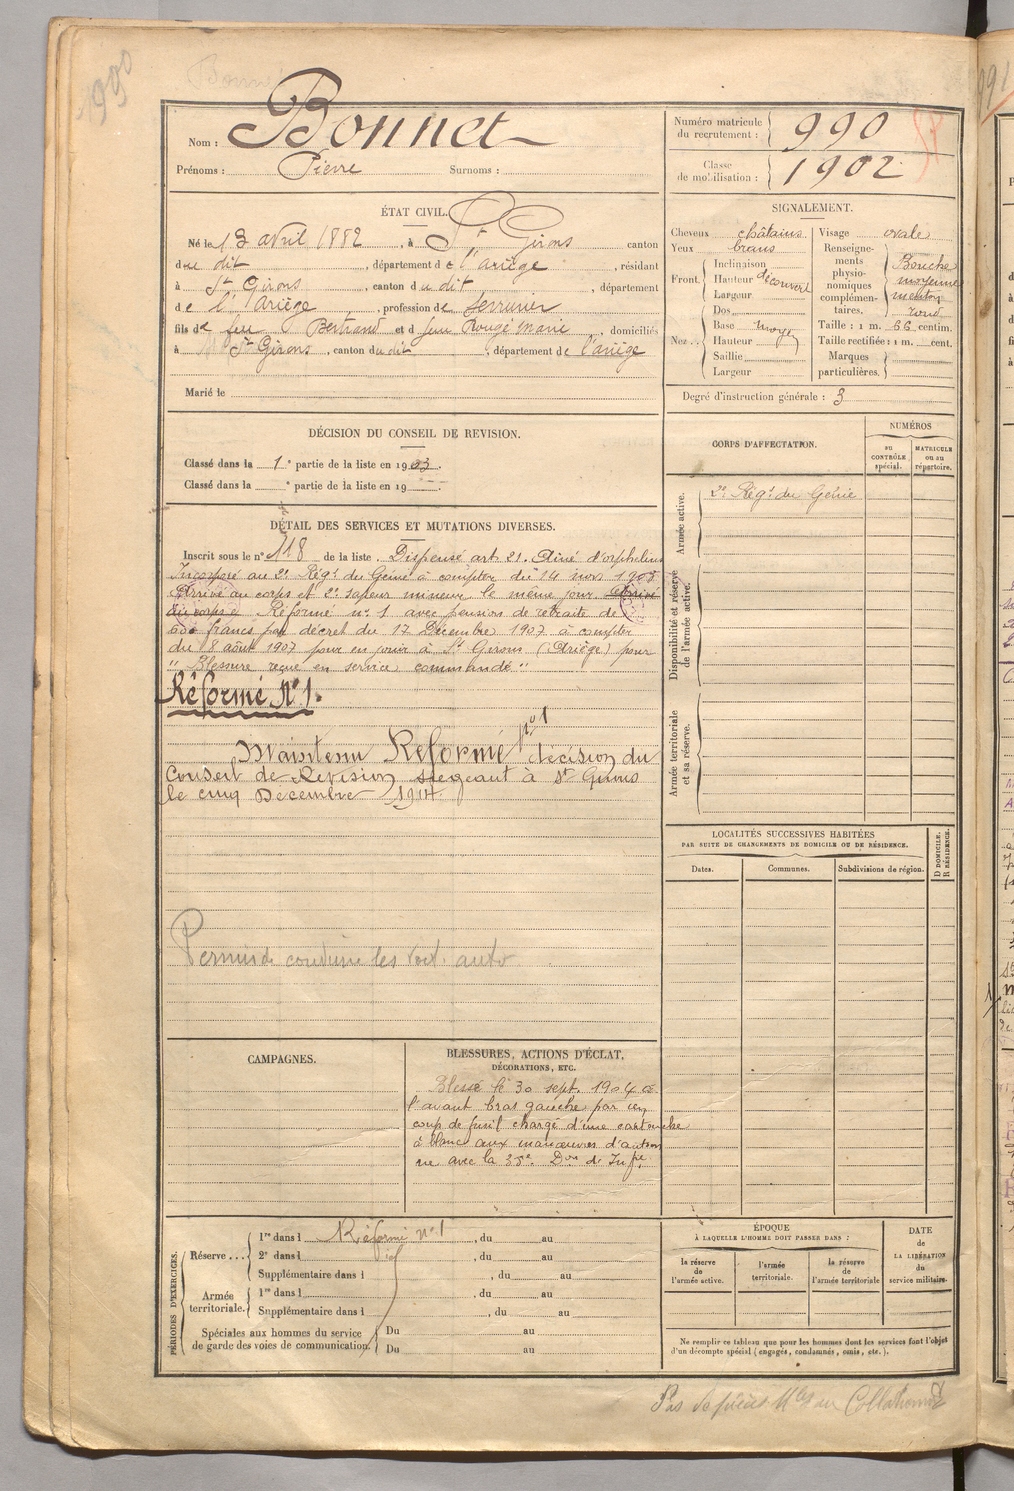 1990
Bonnet
Nom : Bonnet
Prénoms : Pierre Surnoms :
Numéro matricule du recrutement : 990
Classe de mobilisation : 1902
ÉTAT CIVIL.
Né le 13 avril 1882, à St Girons canton
du dit, département de l'Ariège, résidant
à St Girons, canton du dit, département
de l'Ariège, profession de serrurier
fils de feu Bertrand et d feue Rougé Marie, domiciliés
à St Girons, canton du dit, département de l'ariège
Marié le
SIGNALEMENT.
Cheveux châtains
Yeux bruns
Front. Inclinaison
Hauteur découvert
Largeur
Nez. Dos
Base moyen
Hauteur
Saillie
Largeur
Visage ovale
Renseignements physionomiques complémentaires. Bouche moyenne menton rond
Taille : 1 m. 66 centim.
Taille rectifiée : 1 m. cent.
Marques particulières.
Degré d'instruction générale : 3
DÉCISION DU CONSEIL DE REVISION.
Classé dans la 1e partie de la liste en 1903.
Classé dans la e partie de la liste en 19
CORPS D'AFFECTATION.
NUMÉROS
au CONTRÔLE spécial.
MATRICULE ou au répertoire.
Armée active.
2e Régt du Génie
Disponibilité et réserve de l'armée active.
Armée territoriale et sa réserve.
DÉTAIL DES SERVICES ET MUTATIONS DIVERSES.
Inscrit sous le n° 118 de la liste. Dispensé art 21. Aîné d'orphelins
Incorporé au 2e Régt du Génie à compter du 14 nov 1903
Arrivé au corps et 2e sapeur mineur le même jour Arrivé
au corps Réformé n° 1 avec pension de retraite de
600 francs par décret du 17 Décembre 1907 à compter
du 8 août 1907 pour en jouir à St Girons (Ariège) pour
" Blessure reçue en service commandé "
Réformé N°1.
Maintenu Réformé n°1 décision du
Conseil de Revision siégeant à St Girons
le cinq Décembre 1914.
Permis de conduire les voit. auto
LOCALITÉS SUCCESSIVES HABITÉES
PAR SUITE DE CHANGEMENTS DE DOMICILE OU DE RÉSIDENCE.
Dates. Communes. Subdivisions de région. D DOMICILE. R RÉSIDENCE.
CAMPAGNES.
BLESSURES, ACTIONS D'ÉCLAT,
DÉCORATIONS, ETC.
Blessé le 30 sept. 1904 à
l'avant bras gauche par un
coup de fusil chargé d'une cartouche
à blanc aux manœuvres d'autom
ne avec la 35e Don de Infie
PÉRIODES D'EXERCICES.
Réserve ... 1re dans l Réformé n°1, du au
2e dans l id, du au
Supplémentaire dans l , du au
Armée territoriale. 1re dans l , du au
Supplémentaire dans l , du au
Spéciales aux hommes du service de garde des voies de communication. Du au
Du au
ÉPOQUE
À LAQUELLE L'HOMME DOIT PASSER DANS :
la réserve de l'armée active.
l'armée territoriale.
la réserve de l'armée territoriale
DATE de LA LIBÉRATION du service militaire.
Ne remplir ce tableau que pour les hommes dont les services font l'objet
d'un décompte spécial (engagés, condamnés, omis, etc.).